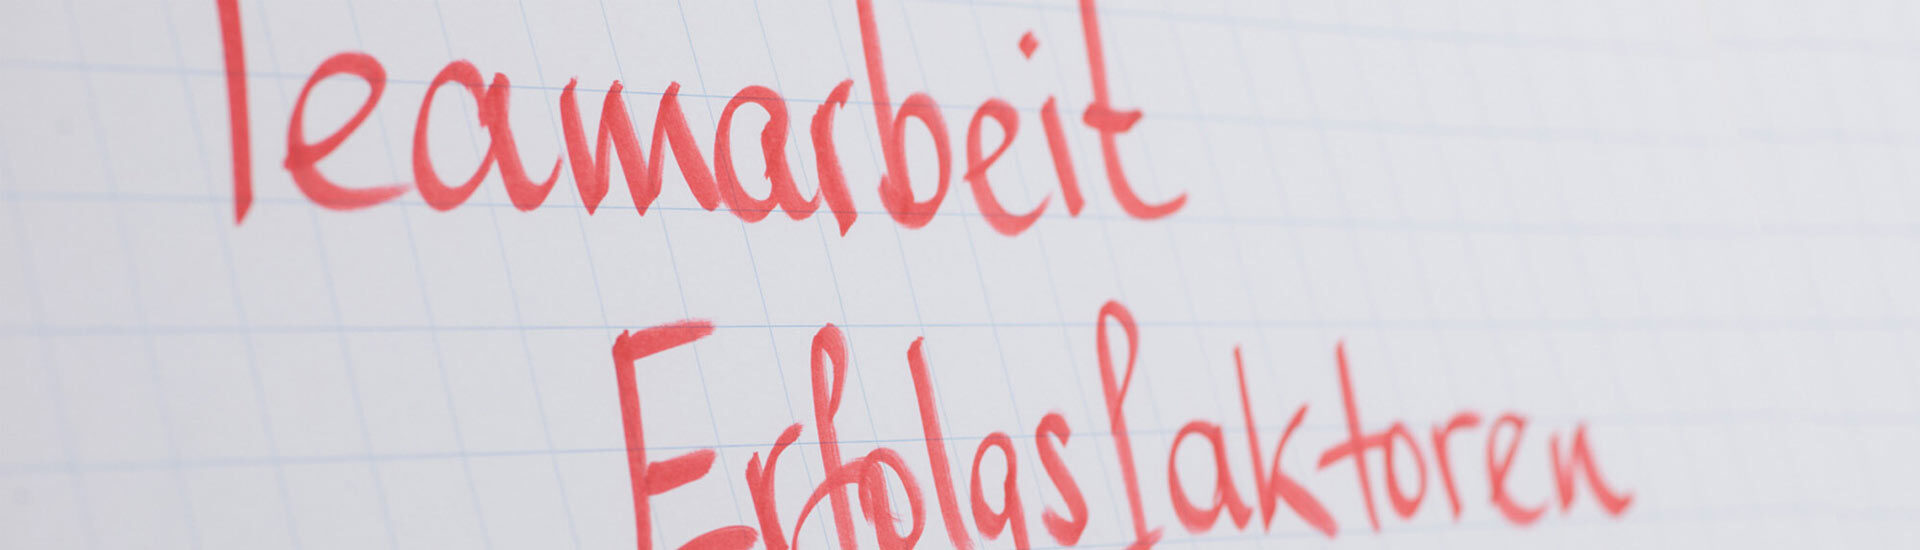 Teamarbeit
Erfolgsfaktoren